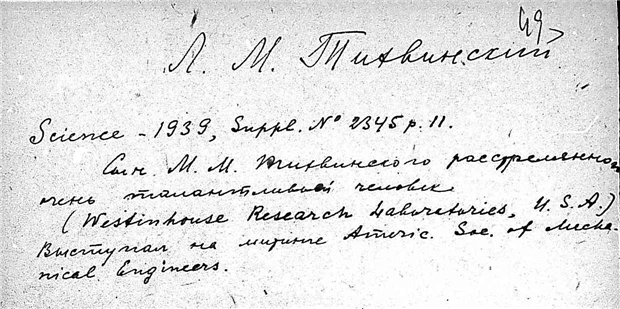 49
Л. М. Тихвинский
Science - 1939, Suppl. № 2345 p. 11.
Сын М. М. Тихвинского расстрелянного
очень талантливый человек
(Westinhouse Research Laboratories, U.S.A.)
Выступал на митинге Americ. Soc. of Mecha-
nical Engineers.